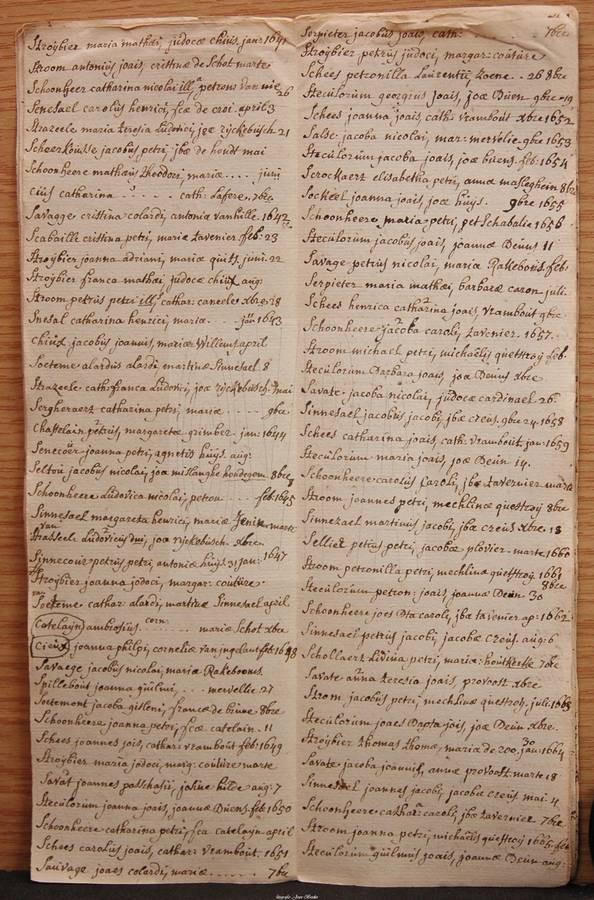 Stroỹbier maria mathæi, judocæ chius, janr 1641
Stroom antonius, joais, cristinæ de Schot marte
Schoonheer catharina nicolai petron: van 26
Senesael carolus henrici, fcæ de croi. april 3
Strazeele maria teresia Ludovici, joæ rijckebusch. 21
jacobus petri, jbæ de hondt mai
Schoonheere mathæus theodori, mariæ .... junj
cius catharina ..... cath: Lafere. 7bre
Savagge cristina colardi, antonia vanhille. 1642
Scabaille cristina petri, mariæ tavenier. feb. 23
Stroỹbier joanna adriani, maria juni. 22
Stroỹbier franca mathæi, judocæ chiux aug:
Stroom petrus petri cathar: canceler xbre. 28
Snesal catharina henrici, maria ... jan 1643
chiux jacobus joannis, mariæ Willems april
Soeteme alardus alardi martinæ Sinnesael. 8
Strazeele cath: franca Ludovici, joæ rijckebusch. mai
Sergheraert catharina petri, mariæ .... 9bre
Chastelain petrus, margaretæ grimber. jan: 1644
Senecoer joanna petri, agnetis huijs. aug:
Seltou jacobus nicolai, joæ hondegem. 8bre
Schoonheere Ludovica nicolai, petron .... feb. 1645
Sinnesael margareta henrici, mariæ marte
van
Strasseele Ludovicus dni, joæ rijckebusch. xbre.
Sinnecour petrus petri, antoniæ huijs 31 jan: 1647
Stroỹbier joanna jodoci, margar: couture
van
Soeteme cathar: alardi, martinæ Sinnesael april
Catelaijn ambrosius corn: .... mariæ Schot xbre
Cieux joanna philpi, corneliæ van feb. 1648
Savaege jacobus nicolai, mariæ Rakeboome.
Spillebout joanna guilmi, ... mervellie 27
Soetemont jacoba gisleni, francæ de brune 8bre
Schoonhere joanna petri, fcæ catelain. 11
Schees joannes jois, cathar: vrambout feb. 1649
Stroỹbier maria jodoci, marg: couture marte
Savat joannes passchasii, josine hulle aug: 7
Steculorum joanna joais, joannæ Duens. feb. 1650
Schoonheere catharina petri, fca catelayn april
Schees carolus joais, cathar: vrambout. 1651
Sauvage joaes colardi, mariæ ...... 7bre
Serpieter jacobus joais, cath: 7bre
Stroỹbier petrus judoci, margar: couture
Schees petronilla Laurentii, Loene .. 26 8bre
Steculorum georgius joais, joæ Duen 9bre 19
Schees joanna joais, cath: vrambout xbre 1652
Salse jacoba nicolai, mar: mervelie 9br. 1653
Steculorum jacoba joais, joæ buens. feb: 1654
Scrockaert elisabetha petri, annæ masleghein 8bre
Sockeel joanna joais, joæ huijs . 9bre 1655
Schoonheere maria petri, pet Schabalie 1656
Steculorum jacobus joais, joannæ Deuns 11
Savage petrus nicolai, mariæ Rakebous. feb:
Serpieter maria mathæi, barbaræ caron juli.
Schees henrica catharina joais, vrambout 9br
Schoonheere jacoba caroli, tavenier. 1657.
Stroom michael petri, michaelis questroij feb.
Steculorum Barbara joais, joa Deuns xbre
Savate jacoba nicolai, judocæ cardinael 26.
Sinnesael jacobus jacobi, jbæ creus. 9br. 24. 1658
Schees catharina joais, cath: vrambout jan: 1659
Steculorum maria joais, joæ Deun 14.
Schoonheere carolus caroli, jbæ tavernier. marte
Stroom joannes petri, mechlinæ questroij 8bre
Sinnesael martinus jacobi, jbæ creus xbr. 13
Sellier petrus petri, jacobæ plovier. marte 1660
Stroom petronilla petri, mechlina questroij. 1661
8bre
Steculorum petron: joais, joanna Deun. 30
Schoonheere joes Dta caroli, jba tavenier ap: 1662
Sinnesael petrus jacobi, jacobæ creus. aug: 6
Schollaert Livina petri, mariæ: houtkeete 7bre
Savate anna teresia joais, provoost. xbre
Stroom jacobus petri, mechlinæ questroij, juli. 1663
Steculorum joaes Bapta jois, joæ Deun xbre.
Stroỹbier thomas thomæ, maria de zoo, 30 jan: 1664
Savate jacoba joannis, annæ provoost. marte 18
Sinnesael joannes jacobi, jacobæ creus mai 4
Schoonheere cathara caroli, jbæ tavernier 7bre
Stroom joanna petri, michaelis questroij 1665. feb.
Steculorum guilmus joais, joannæ Deun aug: